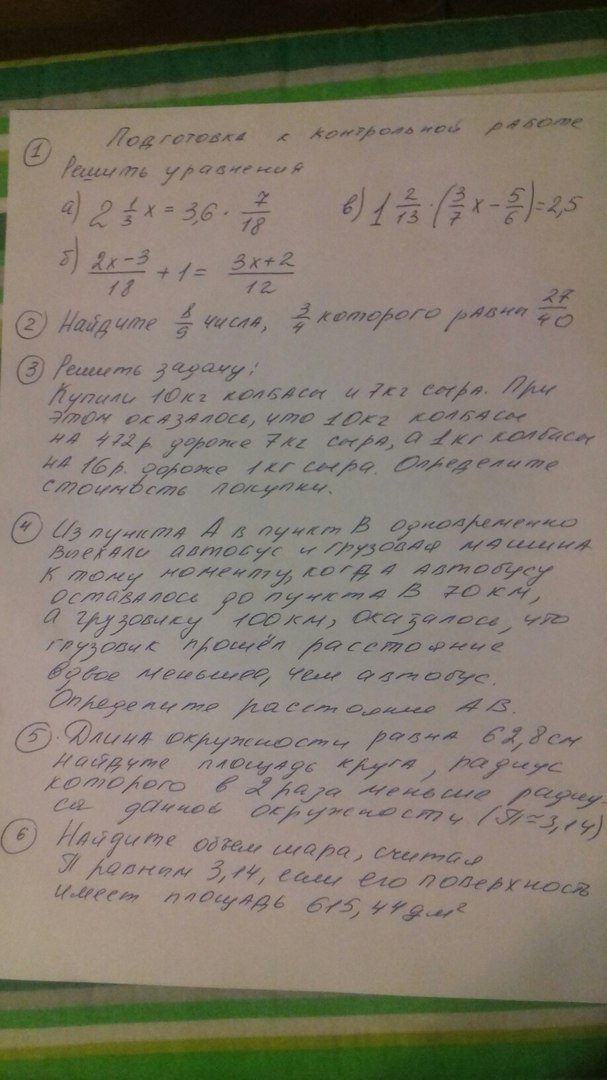 Подготовка к контрольной работе
① Решить уравнения
а) 2 1/3 x = 3,6 · 7/18
в) 1 2/13 · (3/7 x − 5/6) = 2,5
б) (2x−3)/18 + 1 = (3x+2)/12
② Найдите 8/9 числа, 3/4 которого равны 27/40
③ Решить задачу:
Купили 10кг колбасы и 7кг сыра. При
этом оказалось, что 10кг колбасы
на 472р. дороже 7кг сыра, а 1кг колбасы
на 16р. дороже 1кг сыра. Определите
стоимость покупки.
④ Из пункта А в пункт В одновременно
выехали автобус и грузовая машина
К тому моменту, когда автобусу
оставалось до пункта В 70км,
а грузовику 100км, оказалось, что
грузовик прошёл расстояние
вдвое меньшее, чем автобус.
Определите расстояние АВ.
⑤. Длина окружности равна 62,8см
Найдите площадь круга, радиус
которого в 2 раза меньше радиу-
са данной окружности (П≈3,14)
⑥ Найдите объем шара, считая
П равным 3,14, если его поверхность
имеет площадь 615,44дм²